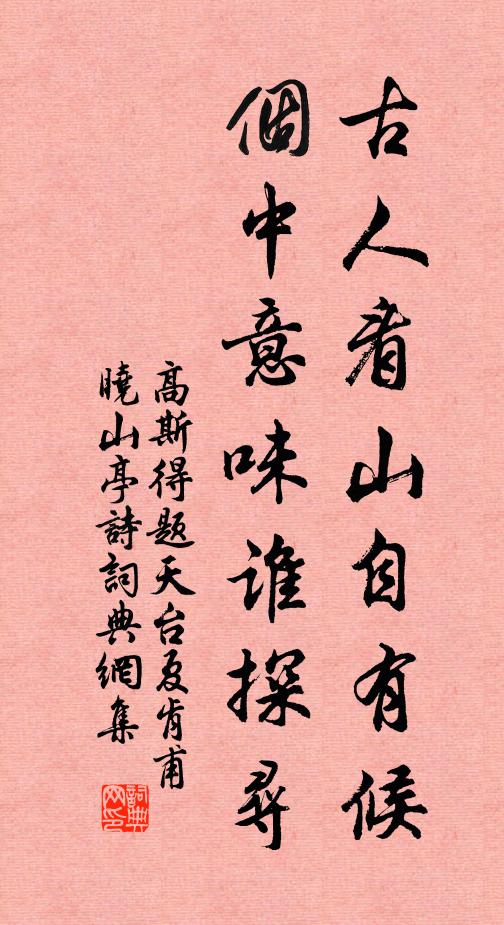 古人看山自有候
個中意味誰探尋
高斯得題天台夏肯甫
曉山亭詩詞典網集
詞典网印